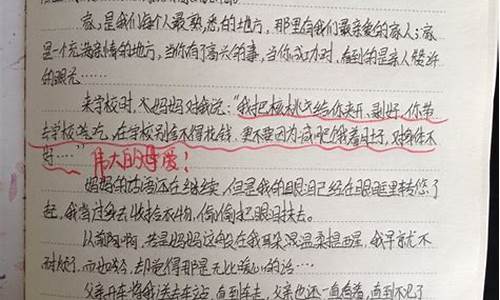 家,是我们每个人最熟悉的地方,那里有我们最亲爱的家人;家
是一个充满亲情的地方,当你有了高兴的事,当你成功时,看到的是亲人赞许
的眼光……
来学校时,妈妈对我说:“我把核桃给你夹开,剥好,你带
去学校吃,在学校别舍不得花钱,更不要因为减肥饿着肚子,对身体不
好……”伟大的母爱!
妈妈的话还在继续,但是我的眼泪已经在眼眶里转悠了
起,我背过身去收拾衣物,偷偷把眼泪抹去。
以前啊,若是妈妈这般在我耳朵温柔提醒,我早就不
耐烦了,而如今,却觉得那是无比暖心的话……
父亲开车将我送去车站,直到车走,父亲也还一直看着,直到不见了